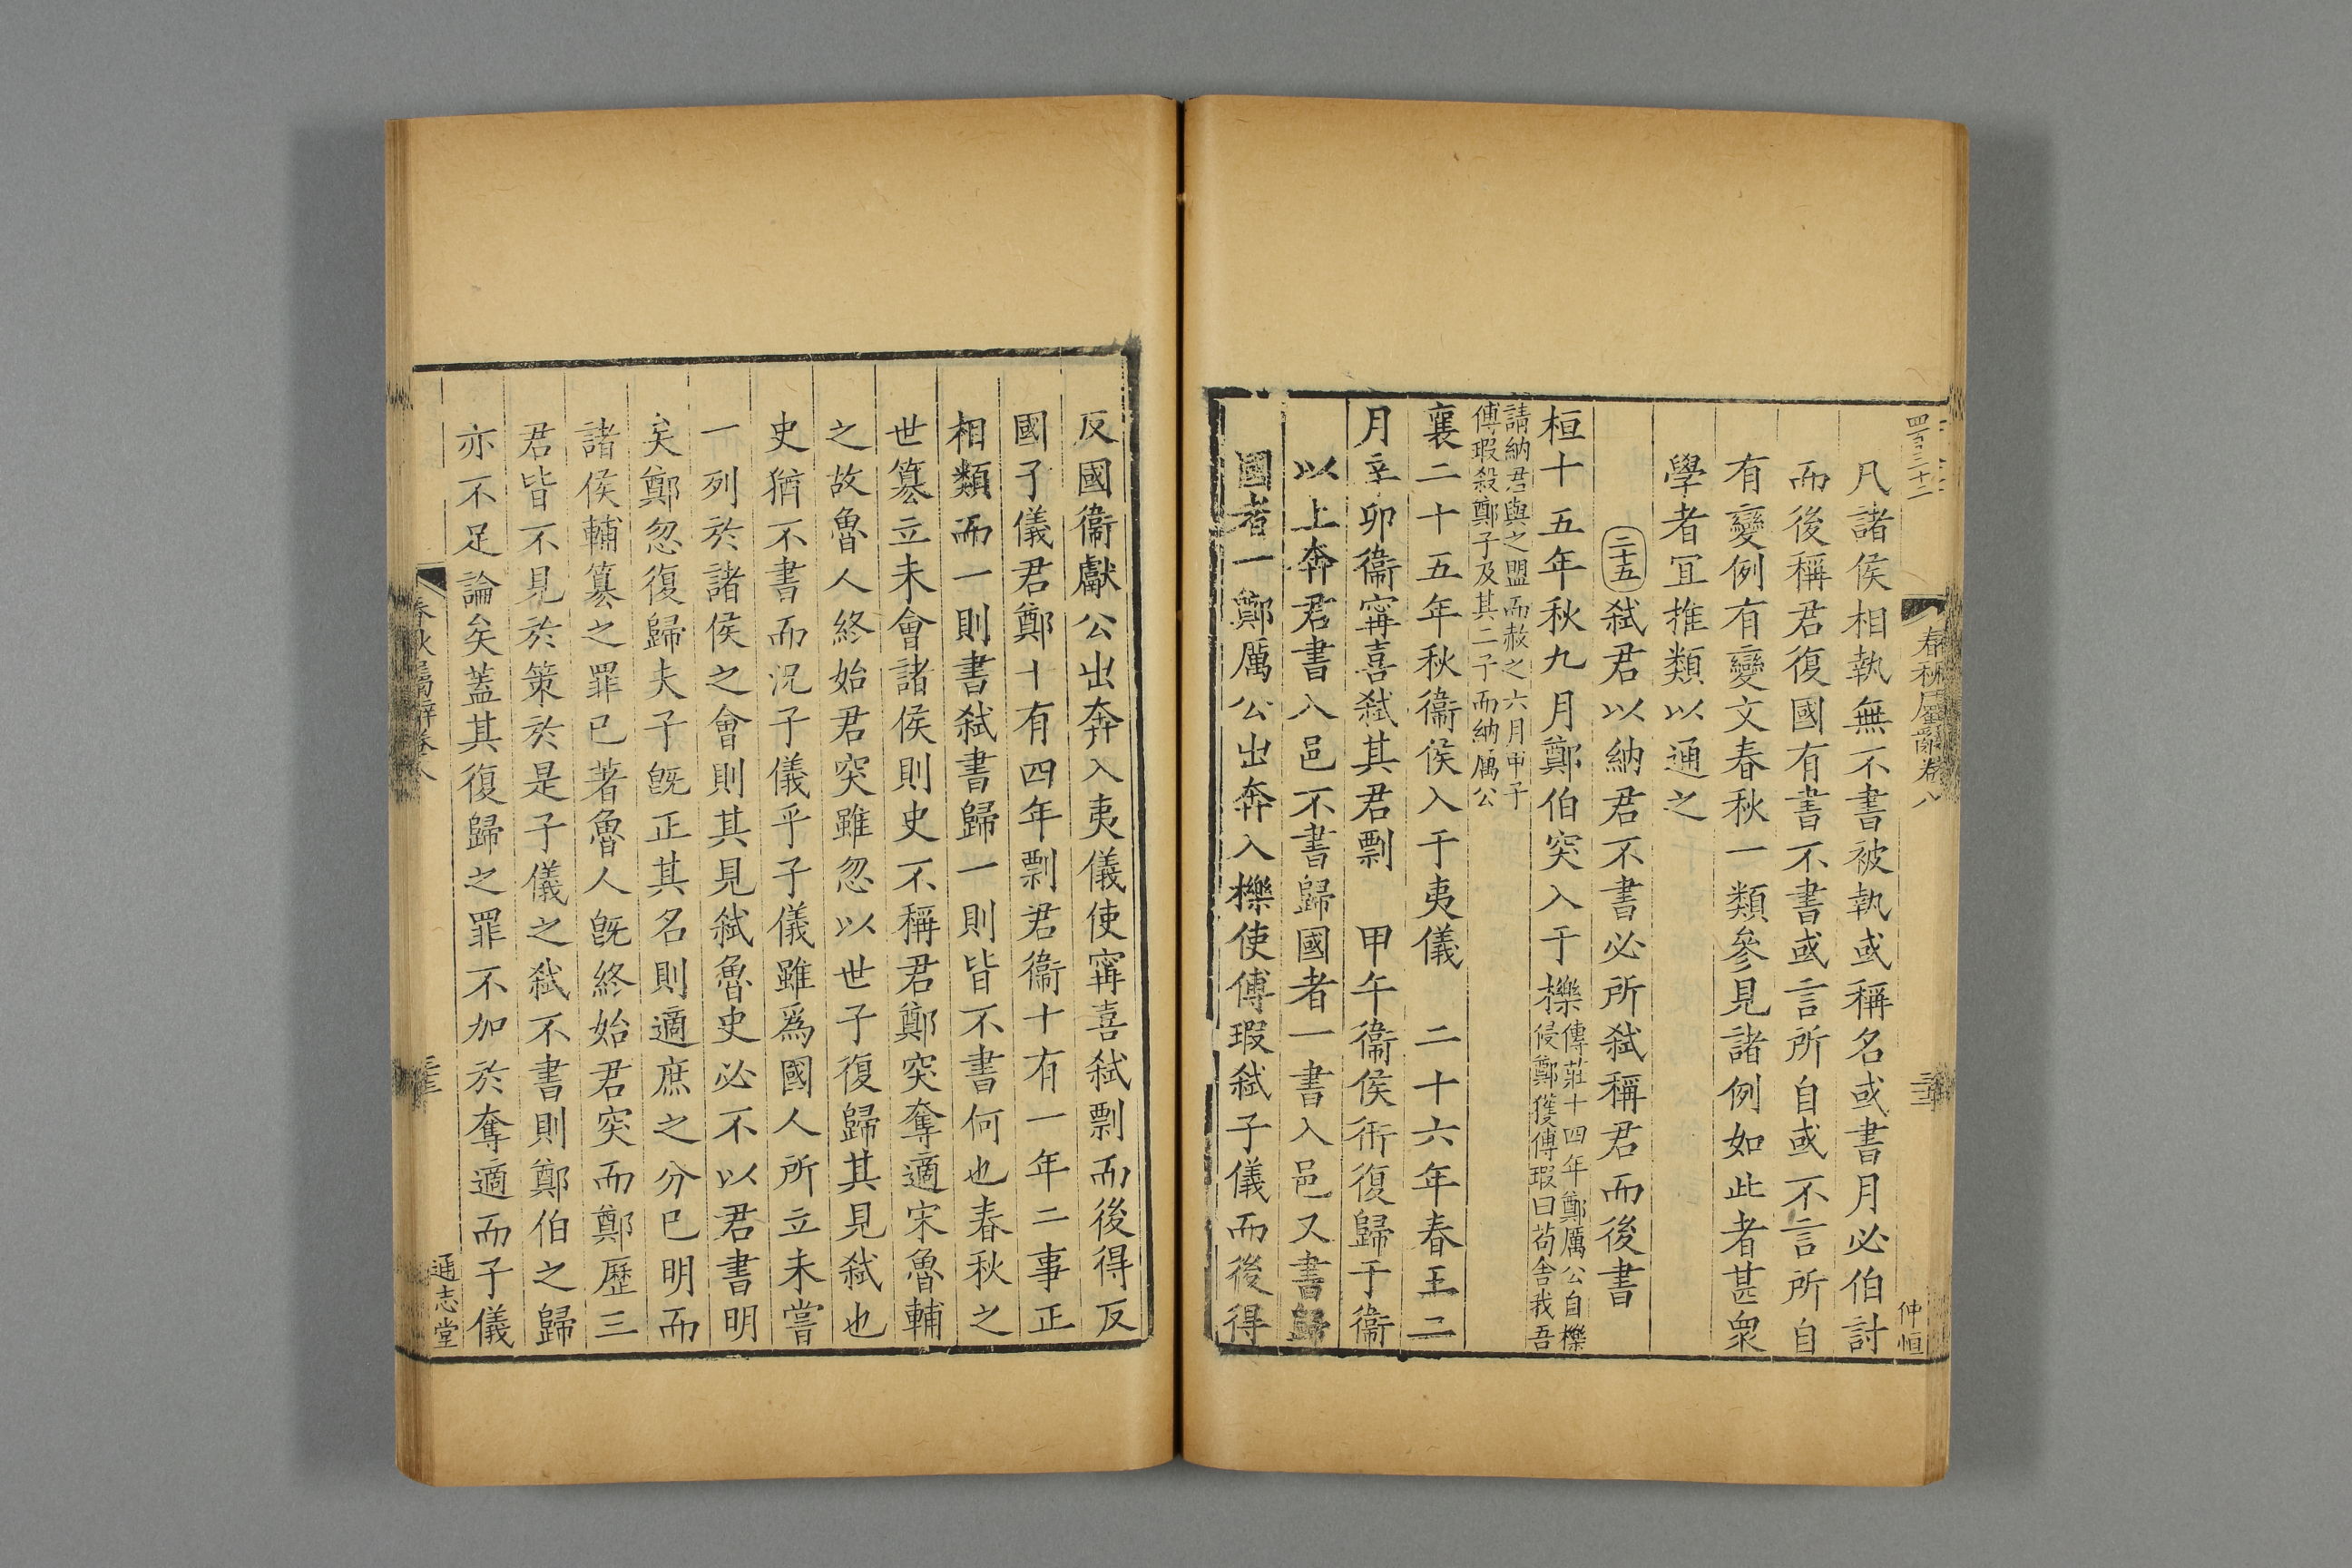 凡諸侯相執無不書被執或稱名或書月必伯討
而後稱君復國有書不書或言所自或不言所自
有變例有變文春秋一類參見諸例如此者甚衆
學者宜推類以通之
二十五弑君以納君不書必所弑稱君而後書
桓十五年秋九月鄭伯突入于櫟傳莊十四年鄭厲公自櫟
侵鄭獲傅瑕曰苟舍我吾
請納君與之盟而赦之六月甲子
傅瑕殺鄭子及其二子而納厲公
襄二十五年秋衞侯入于夷儀　二十六年春王二
月辛卯衞甯喜弑其君剽　甲午衞侯衎復歸于衞
以上奔君書入邑不書歸國者一書入邑又書歸
國者一鄭厲公出奔入櫟使傅瑕弑子儀而後得
反國衞獻公出奔入夷儀使甯喜弑剽而後得反
國子儀君鄭十有四年剽君衞十有一年二事正
相類而一則書弑書歸一則皆不書何也春秋之
世簒立未會諸侯則史不稱君鄭突奪適宋魯輔
之故魯人終始君突雖忽以世子復歸其見弑也
史猶不書而況子儀乎子儀雖爲國人所立未嘗
一列於諸侯之會則其見弑魯史必不以君書明
矣鄭忽復歸夫子旣正其名則適庶之分已明而
諸侯輔簒之罪已著魯人旣終始君突而鄭歷三
君皆不見於策於是子儀之弑不書則鄭伯之歸
亦不足論矣蓋其復歸之罪不加於奪適而子儀
春秋屬辭卷八
仲恒
春秋屬辭卷八
通志堂